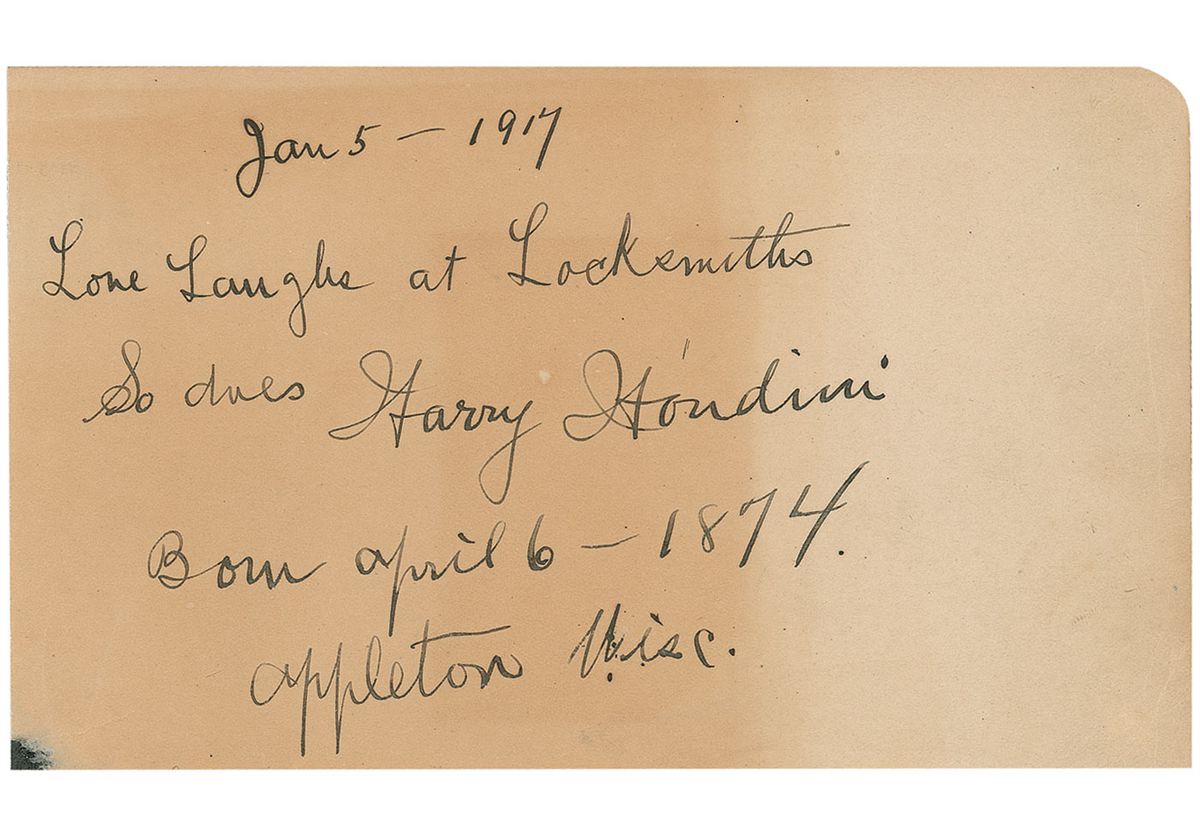 Jan 5 – 1917
Love Laughs at Locksmiths
So does Harry Houdini
Born april 6 – 1874.
appleton Wisc.